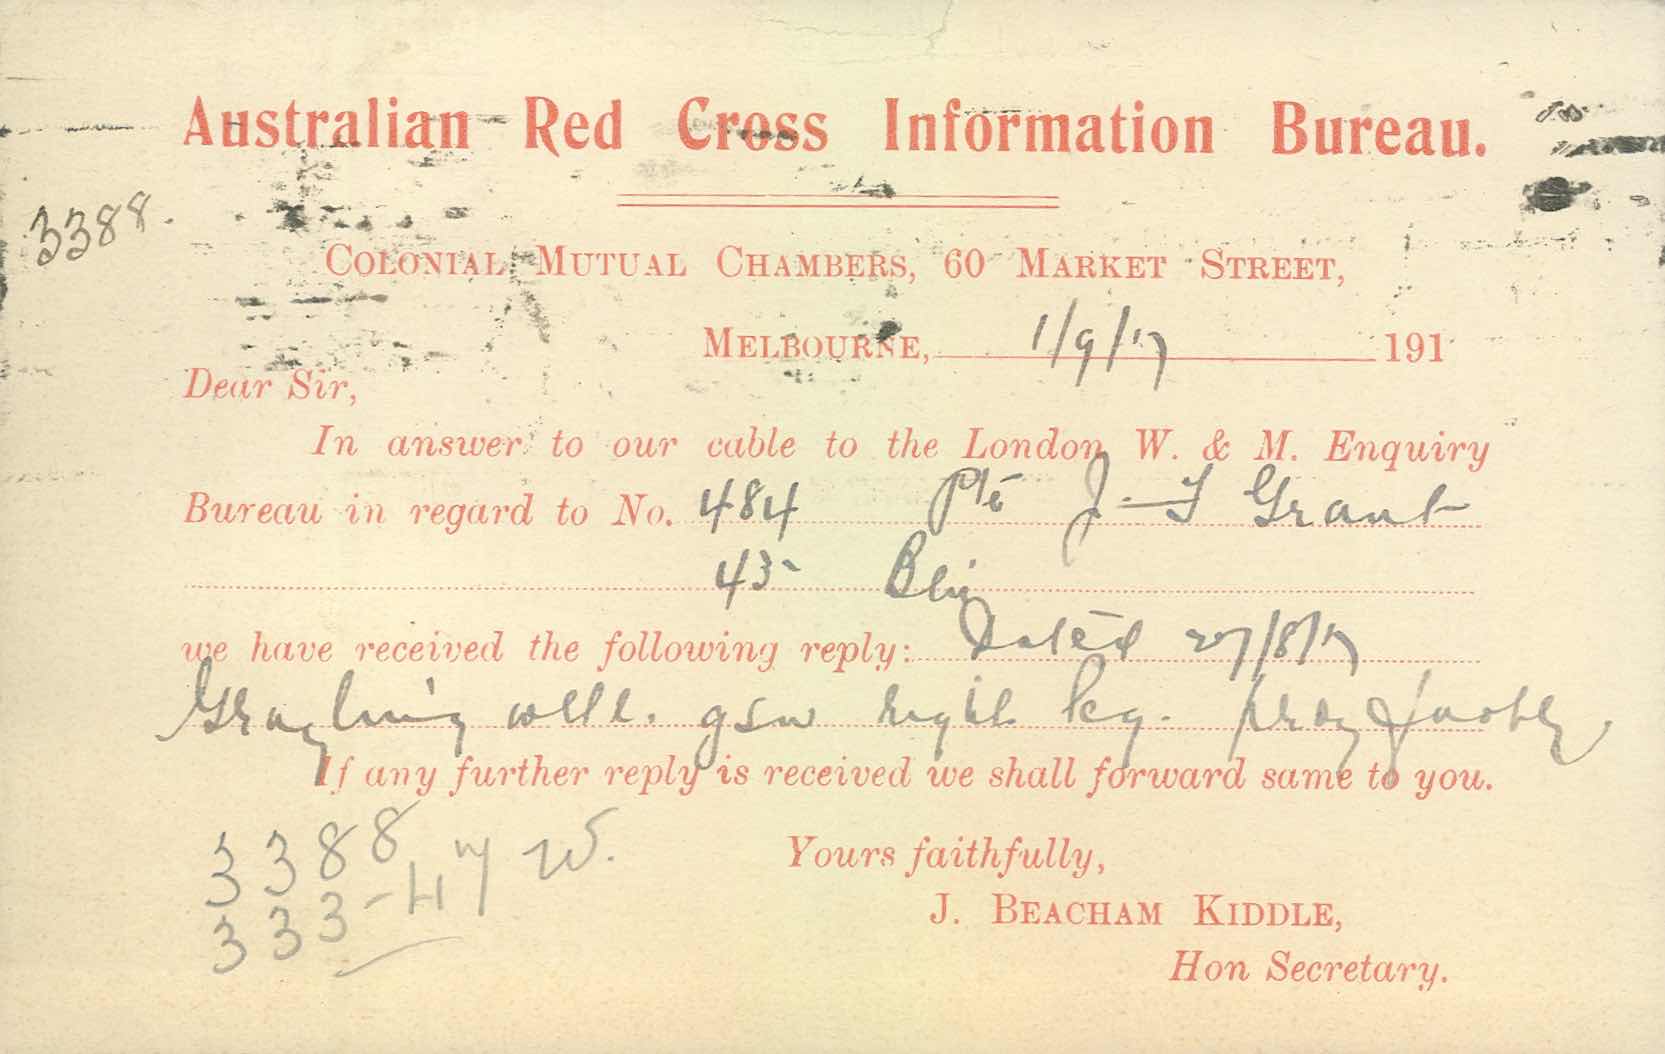 Australian Red Cross Information Bureau.
3388.
COLONIAL MUTUAL CHAMBERS, 60 MARKET STREET,
MELBOURNE, 1/9/17 191
Dear Sir,
In answer to our cable to the London W. & M. Enquiry
Bureau in regard to No. 484 Pte J. F Grant
43- Bn
we have received the following reply: Dated 27/8/17
Graylingwell. gsw right leg.
If any further reply is received we shall forward same to you.
3388
333
W.
Yours faithfully,
J. BEACHAM KIDDLE,
Hon Secretary.